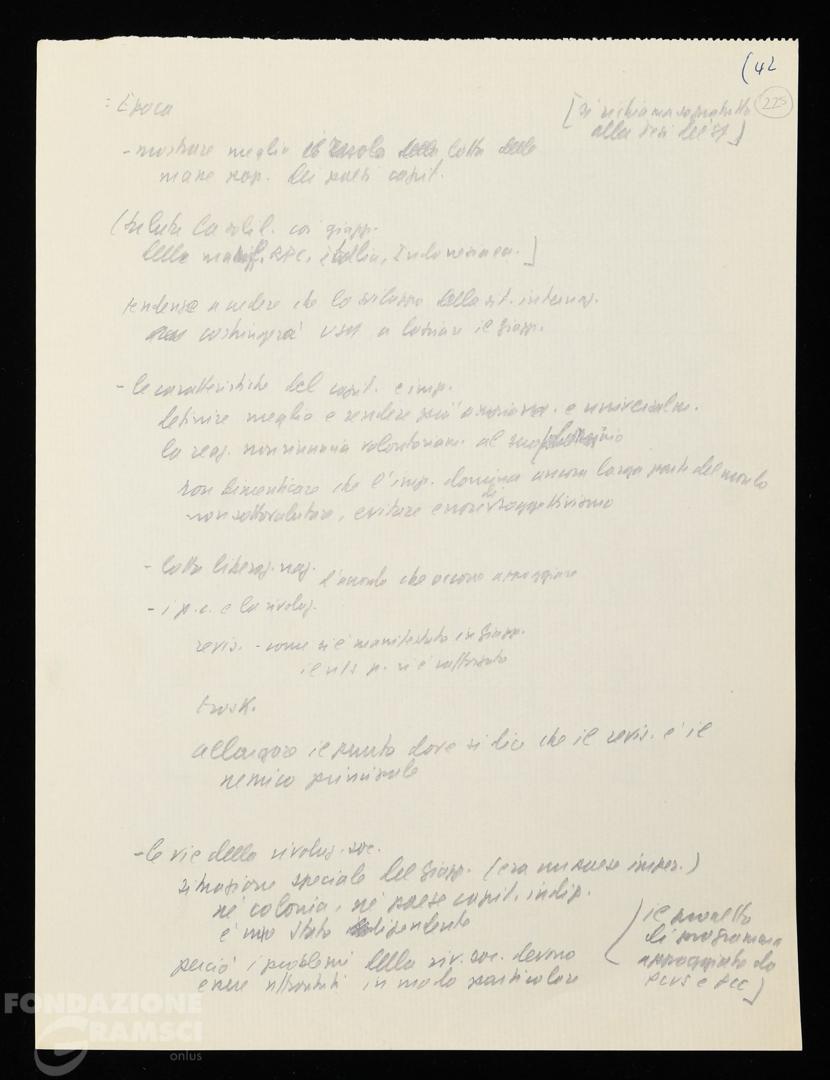 (42
225
: Epoca
[si richiama sopratutto
alla tesi dei 81]
- mostrare meglio il ruolo della lotta delle
masse pop. dei paesi capit.
(saluta la solid. coi giapp.
della manif. RPC, Italia, Indonesia ecc.]
tendenza a vedere che lo sviluppo della sit. internaz.
costringerà USA a lasciare il Giapp.
- le caratteristiche del capit. e imp.
definire meglio e rendere più e universalm.
la reaz. non rinuncia volontariam. al suo dominio
non dimenticare che l'imp. domina ancora larga parte del mondo
non sottovalutare, evitare errori di soggettivismo
- lotta liberaz. naz. l'accordo che occorre appoggiare
- i p.c. e la rivoluz.
revis. - come si è manifestato in Giapp.
p. si è rafforzato
trosk.
allargare il punto dove si dice che il revis. è il
nemico principale
- le vie della rivoluz. soc.
situazione speciale del Giapp. (era un paese imper.)
né colonia, né paese capit. indip.
è uno Stato dipendente
perciò i problemi della riv. soc. devono
essere affrontati in modo particolare
(il progetto
di programma
appoggiato da
PCUS e PCC]
FONDAZIONE
GRAMSCI
onlus